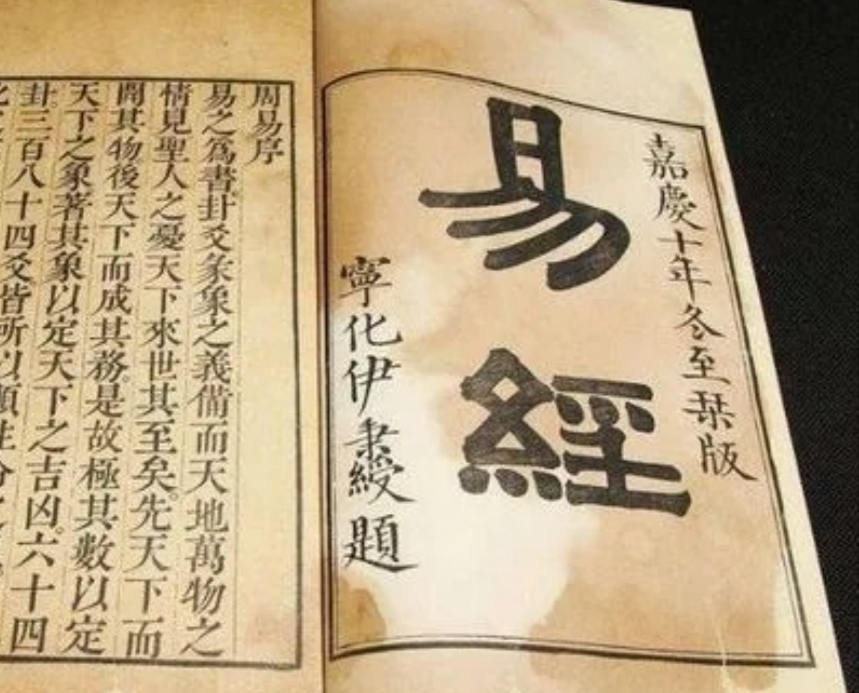 嘉慶十年冬至栞版
易經
寧化伊秉綬題
周易序
易之為書卦爻彖象之義備而天地萬物之
情見聖人之憂天下來世其至矣先天下而
開其物後天下而成其務是故極其數以定
天下之象著其象以定天下之吉凶六十四
卦三百八十四爻皆所以順性命之